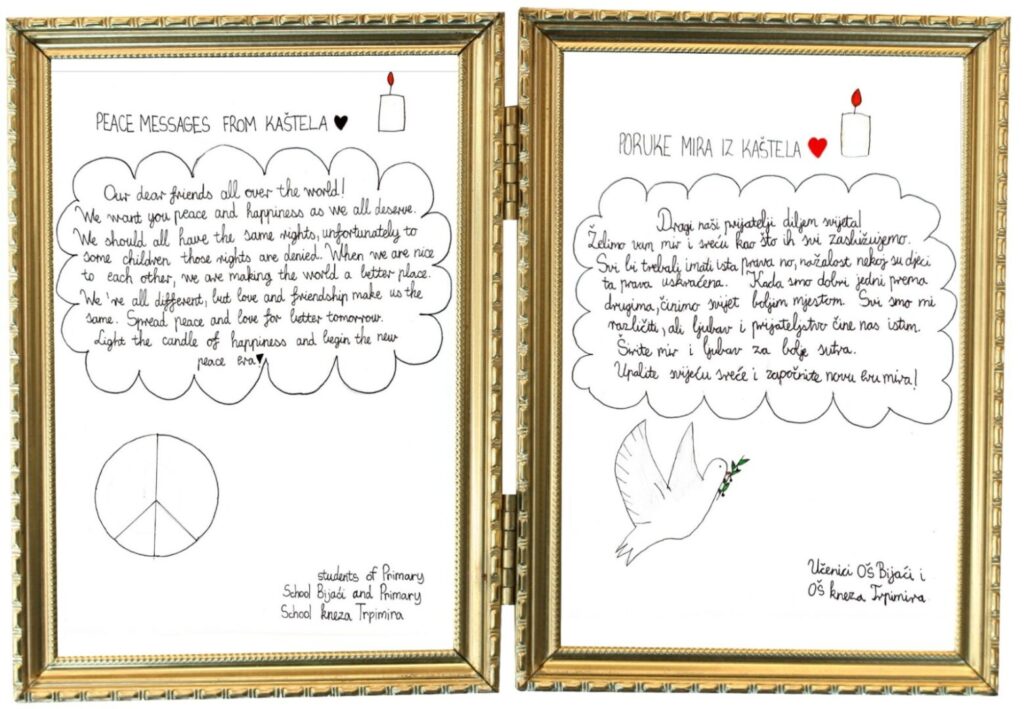 PEACE MESSAGES FROM KAŠTELA
Our dear friends all over the world!
We want you peace and happiness as we all deserve.
We should all have the same rights, unfortunately to
some children those rights are denied. When we are nice
to each other, we are making the world a better place.
We're all different, but love and friendship make us the
same. Spread peace and love for better tomorrow.
Light the candle of happiness and begin the new
peace era
students of Primary
School Bijaći and Primary
School kneza Trpimira
PORUKE MIRA IZ KAŠTELA
Dragi naši prijatelji diljem svijeta!
Želimo vam mir i sreću kao što ih svi zaslužujemo.
Svi bi trebali imati ista prava no, nažalost nekoj su djeci
ta prava uskraćena. Kada smo dobri jedni prema
drugima, činimo svijet boljim mjestom. Svi smo mi
različiti, ali ljubav i prijateljstvo čine nas istim.
Širite mir i ljubav za bolje sutra.
Upalite svijeću sreće i započnite novu eru mira!
Učenici OŠ Bijaći i
OŠ kneza Trpimira